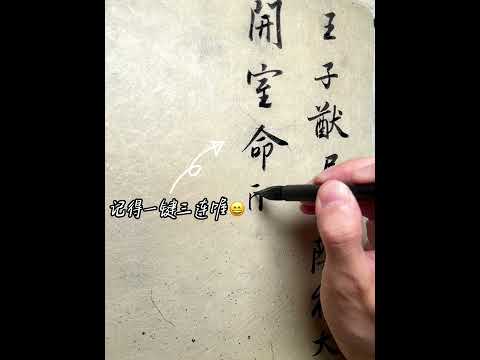 王子猷居陰夜大
開室命
记得一键三连😄